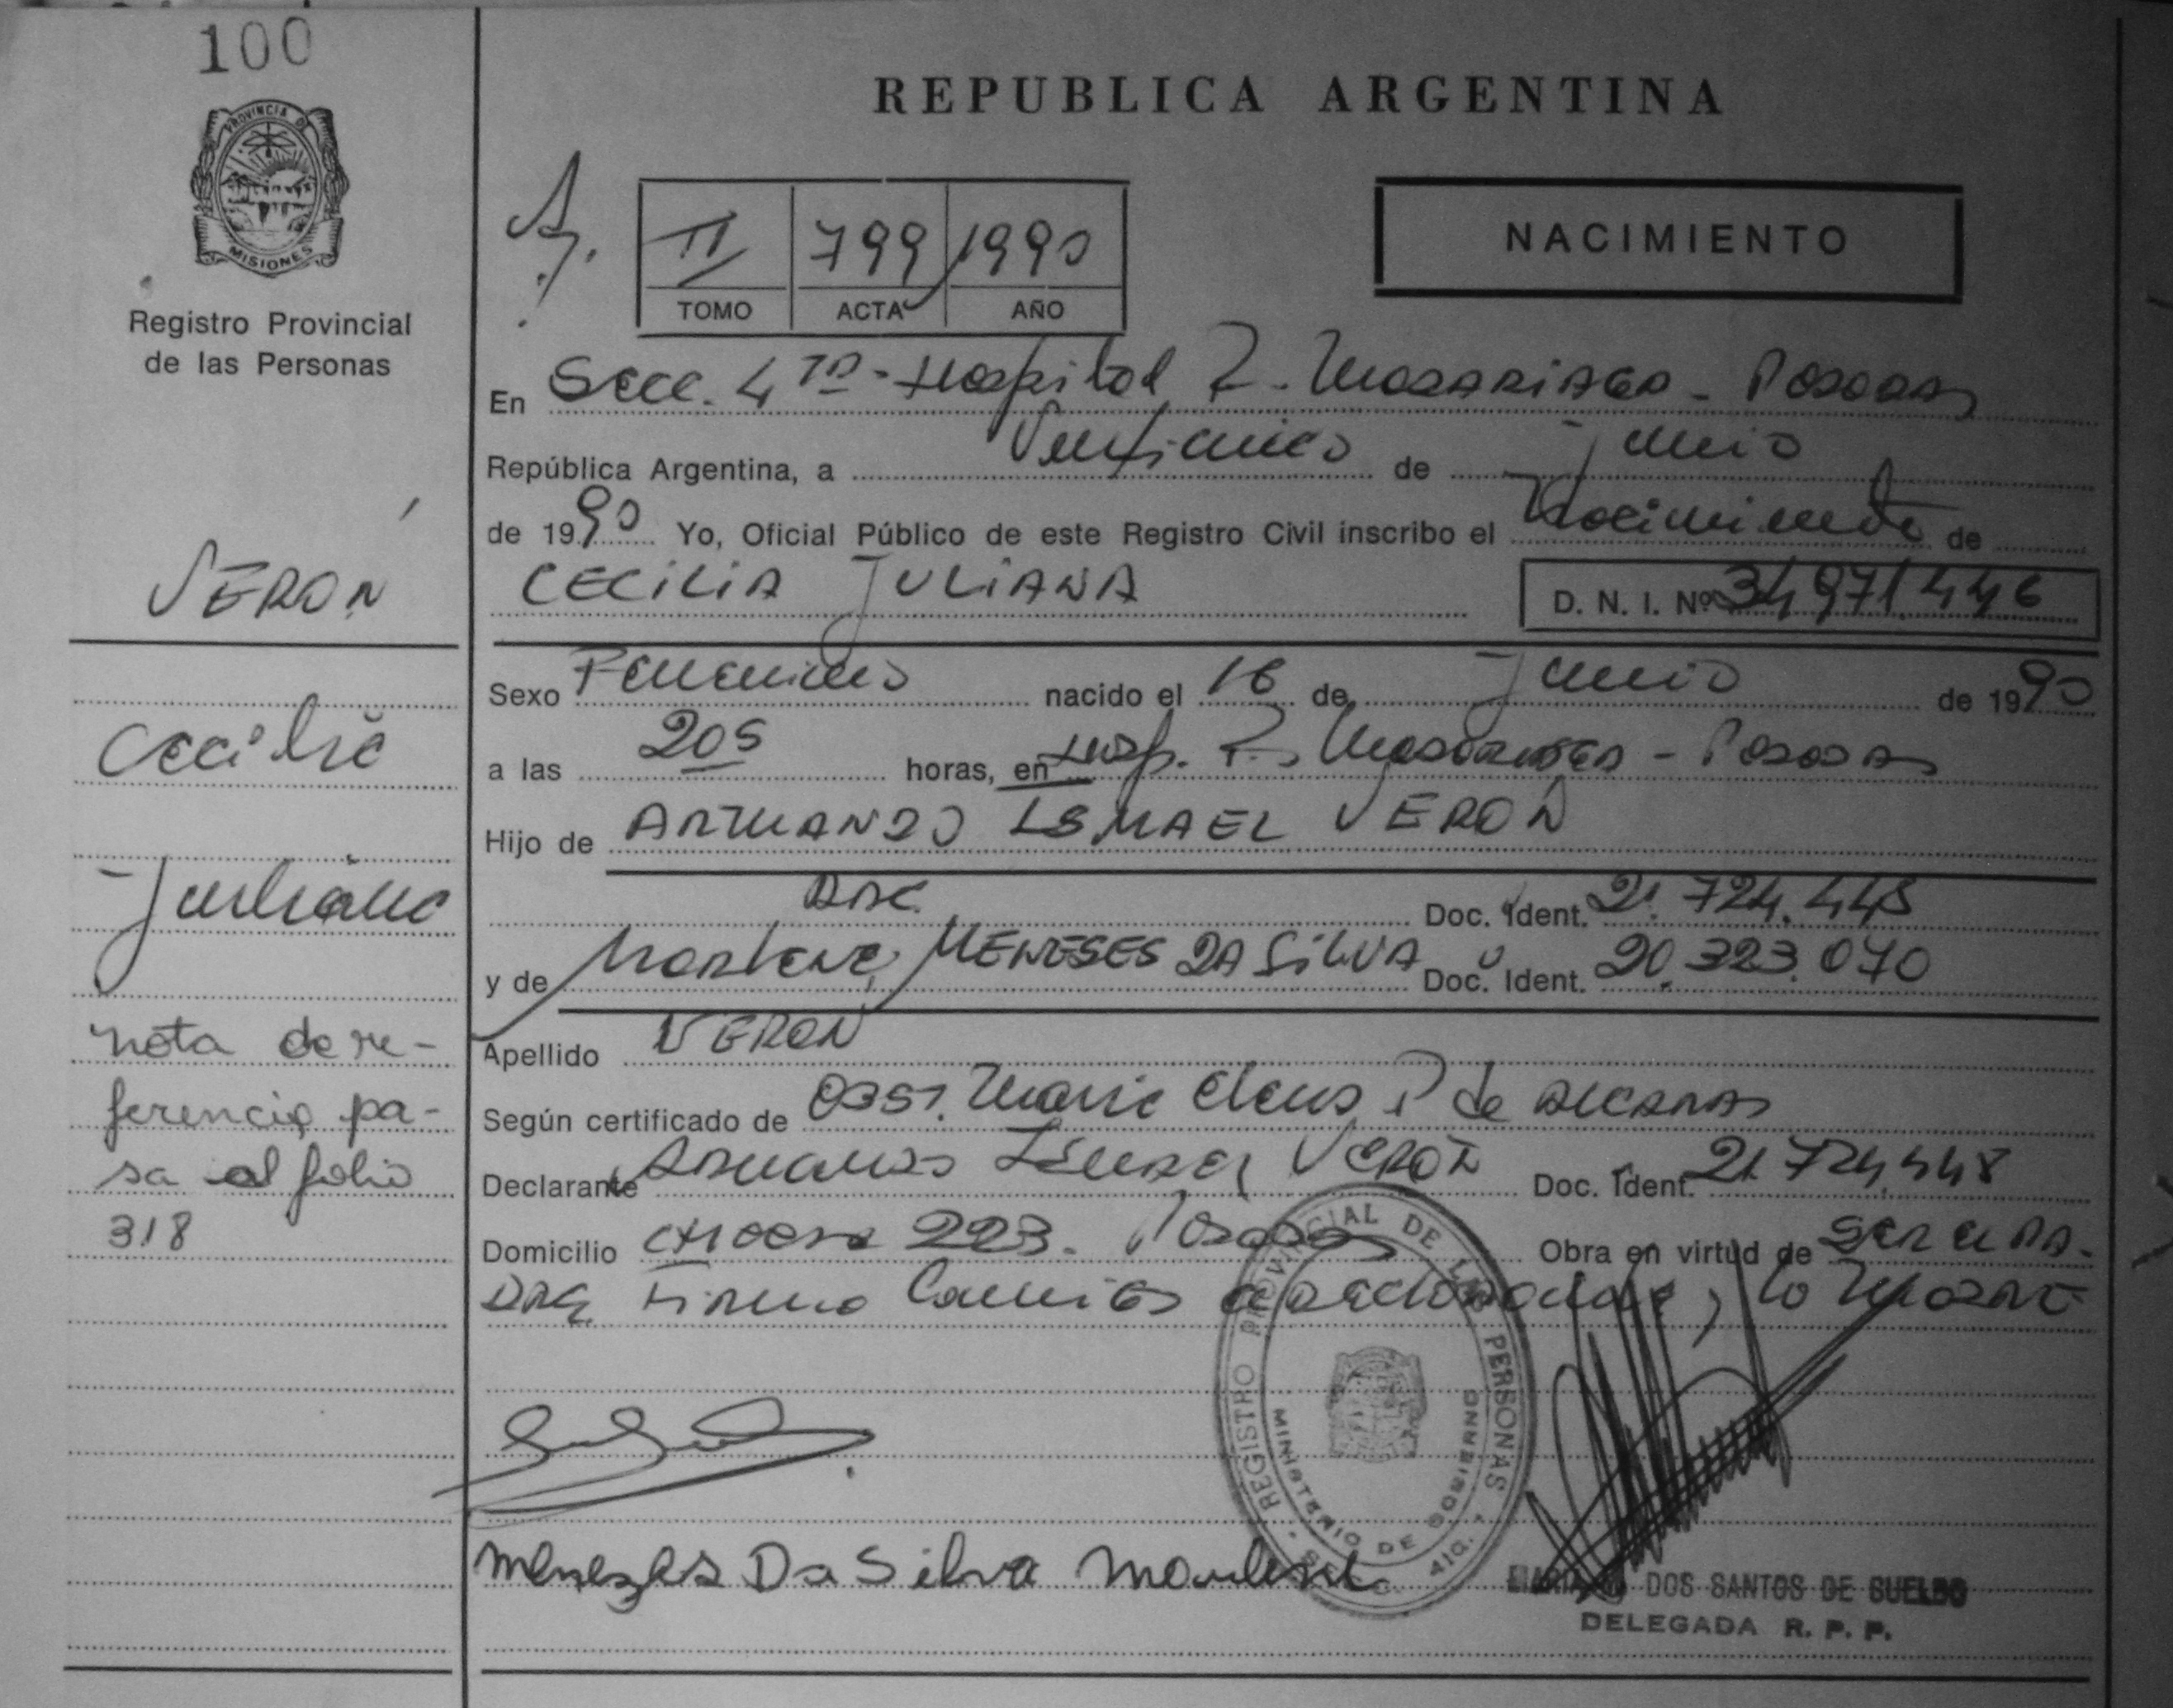 100
PROVINCIA DE
MISIONES
Registro Provincial
de las Personas
VERON
Cecilia
Juliana
nota de re-
ferencia pa-
sa al folio
318
REPUBLICA ARGENTINA
II 799 1990
TOMO ACTA AÑO
NACIMIENTO
En Secc. 4ta - Hospital R. Madariaga - Posadas
República Argentina, a Veinticinco de Junio
de 1990 Yo, Oficial Público de este Registro Civil inscribo el Nacimiento de
CECILIA JULIANA D. N. I. Nº 34971446
Sexo Femenino nacido el 16 de Junio de 1990
a las 205 horas, en Hosp. R. Madariaga - Posadas
Hijo de ARMANDO ISMAEL VERON
Arg. Doc. Ident. 21.724.448
y de Marlene MENESES DA SILVA Doc. Ident. 20.323.070
Apellido VERON
Según certificado de Obst. Maria Elena P de
Declarante Armando Ismael VERON Doc. Ident. 21.724.448
Domicilio 223. Posadas Obra en virtud de ser el pa-
dre Firma Conmigo el declarante y la Madre
Menezes Da Silva Marlene
REGISTRO PROVINCIAL DE LAS PERSONAS
MINISTERIO DE GOBIERNO
DOS SANTOS DE SUELDO
DELEGADA R. P. P.